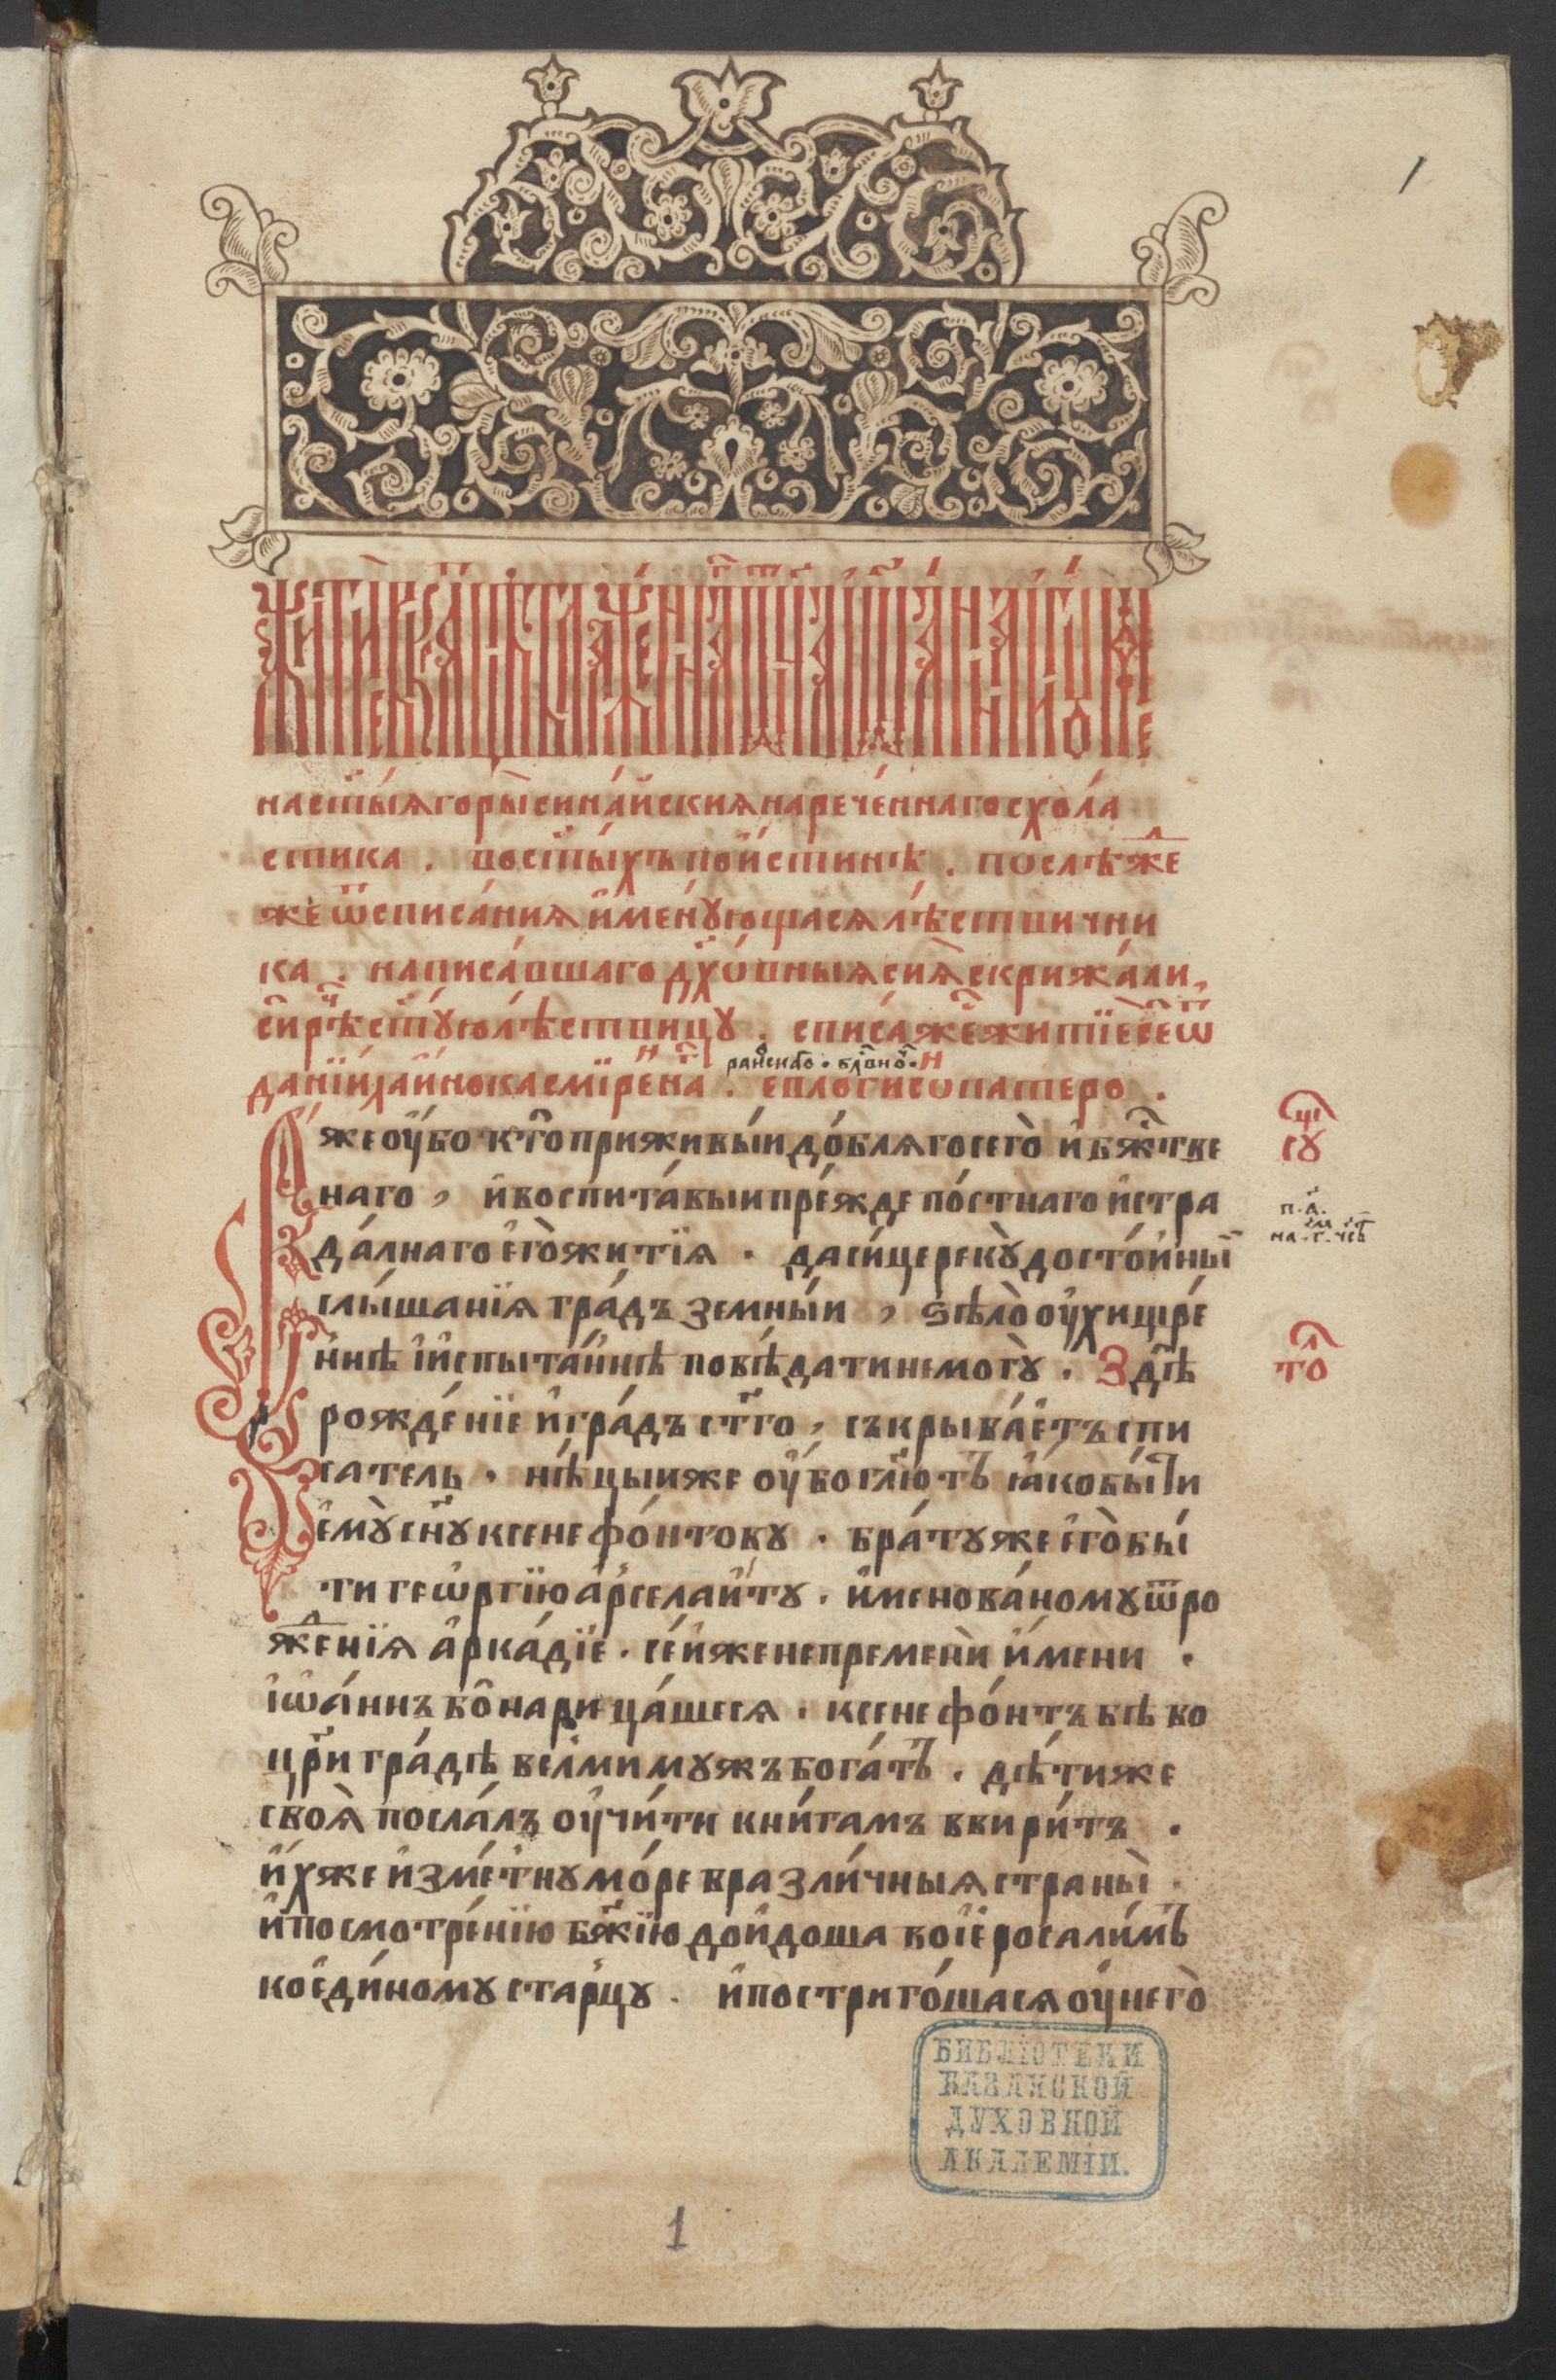 1
настыѧ горы синайскиѧ нареченнаго схола
стика . во стыхъ поистинѣ . послѣже
же ѿ списаниѧ именующасѧ лѣствични
ка . написавшаго дховныѧ сиѧ скрижали ,
сирѣ стую лѣствицу . списа же житїе се ѿ
данїила инока смїрена . еѵлогисо патеро .
ꙗже оубо кто приживыи доблѧго сего и бжтве
наго , и воспитавыи прежде постнаго и стра
далнаго его житїѧ . да сице реку достоины
слышанїѧ градъ земныи , ѕѣло оухищре
ннѣ и испытаннѣ повѣдати не могу . Здѣ
рожденїе и градъ стго , съкрываетъ спи
сатель . нѣцыи же оубо глютъ ꙗко быти
ему сну ксенефонтову . брату же его бы
ти геѡргїю арселаиту . именованому ѿ ро
женїѧ аркадїе . сеи же непремени имени .
іѡаннъ бо нарицашесѧ . ксенефонтъ бѣ во
цри градѣ велми мужъ богатъ . дѣти же
своѧ послалъ оучити книгамъ ввиритъ .
ихже изметну море вразличныѧ страны .
и по смотренїю бжїю доидоша во іеросалимъ
ко единому старцу . и постригошасѧ оу него
БИБЛІОТЕКИ
КАЗАНСКОЙ
ДУХОВНОЙ
АКАДЕМІИ.
1